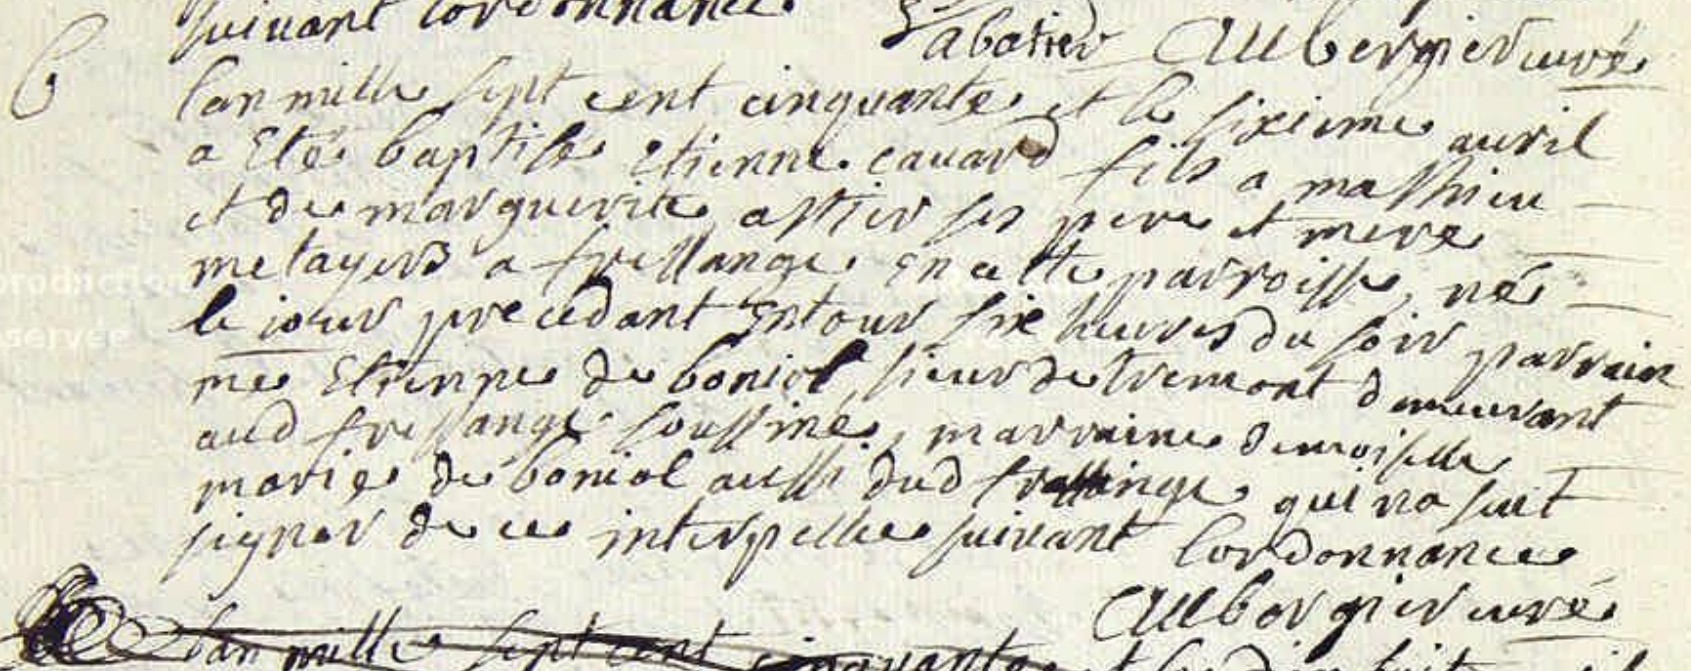 suivant lordonnance.
Sabatier Aubergier curé
B
lan mille sept cent cinquante et le sixieme avril
a eté baptisé etienne cavard fils a mathieu
et de marguerite astier ses pere et mere
metayers a fressange en cette parroisse, né
le jour precedant entour six heures du soir parrain
me Etienne de boniol sieur de tremont demeurant
aud fressange soussine, marraine demoiselle
marie de boniol aussi dud fressange qui na sait
signer de ce interpellee suivant lordonnance
Aubergier curé
lan mille sept cent cinquante et le dix huit
production
servée